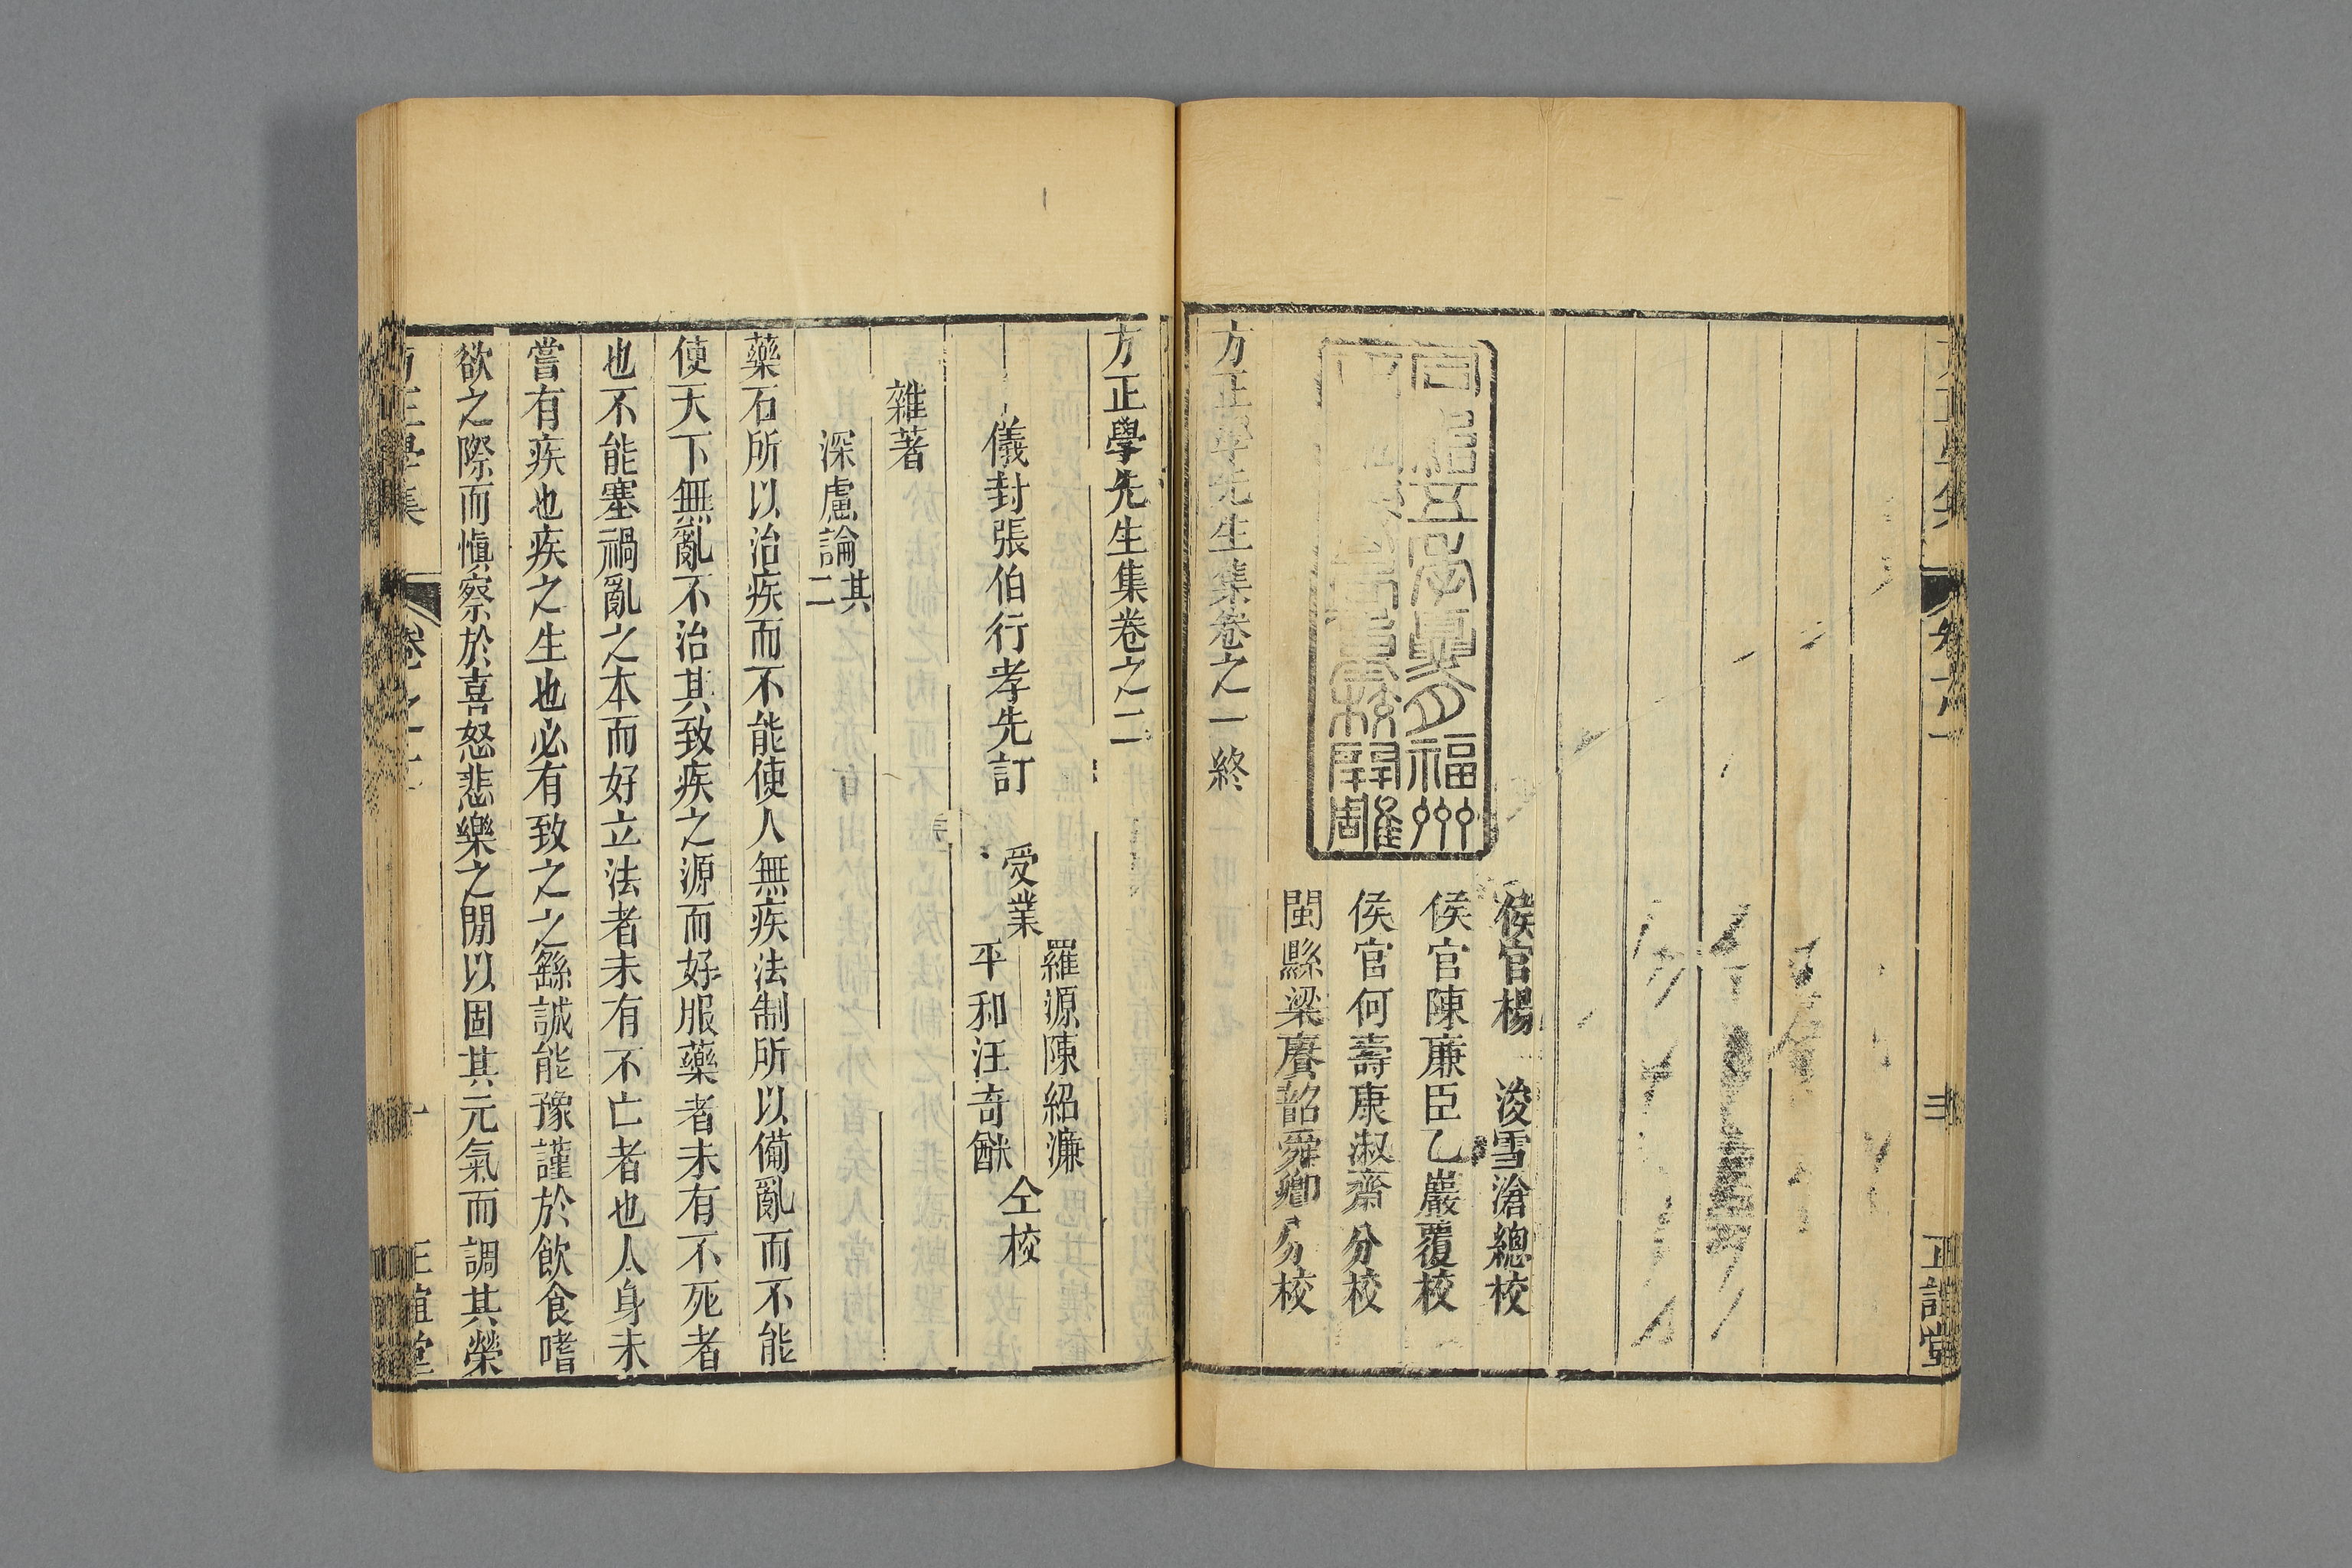 侯官楊　浚雪滄總校
侯官陳廉臣乙巖覆校
侯官何壽康淑齋分校
閩縣梁賡韶舜卿分校
同治五年夏月福州
正誼書院開雕
方正學先生集卷之一終
正誼堂
方正學先生集卷之二
儀封張伯行孝先訂
受業
羅源陳紹濂
平和汪奇猷
仝校
雜著
深慮論其二
藥石所以治疾而不能使人無疾法制所以備亂而不能
使天下無亂不治其致疾之源而好服藥者未有不死者
也不能塞禍亂之本而好立法者未有不亡者也人身未
嘗有疾也疾之生也必有致之之繇誠能豫謹於飲食嗜
欲之際而慎察於喜怒悲樂之閒以固其元氣而調其榮
方正學集
卷之二
一
正誼堂